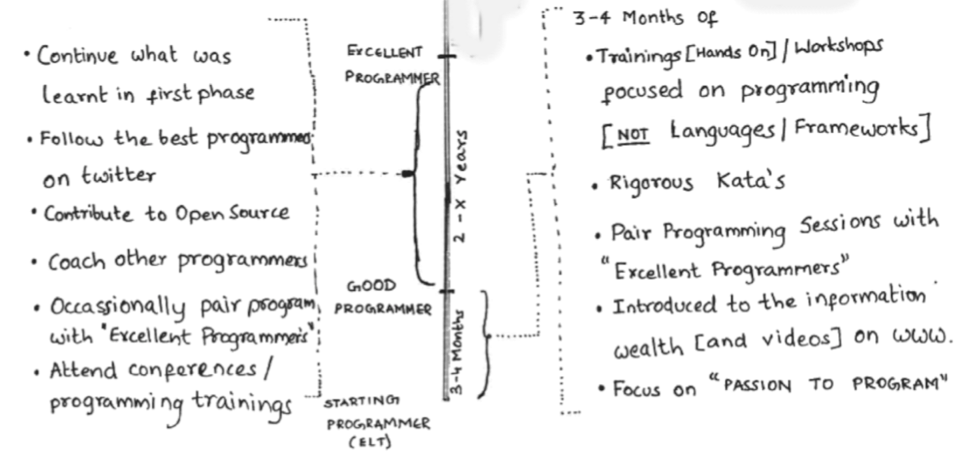 • Continue what was
learnt in first phase
• Follow the best programmers
on twitter
• Contribute to Open Source
• Coach other programmers
• Occassionally pair program
with "Excellent Programmers"
• Attend conferences /
programming trainings
EXCELLENT
PROGRAMMER
2 - X Years
GOOD
PROGRAMMER
3-4 Months
STARTING
PROGRAMMER
(ELT)
3-4 Months of
• Trainings [Hands On] / Workshops
focused on programming
[NOT Languages / Frameworks]
• Rigorous Kata's
• Pair Programming Sessions with
"Excellent Programmers"
• Introduced to the information
wealth [and videos] on www.
• Focus on "PASSION TO PROGRAM"